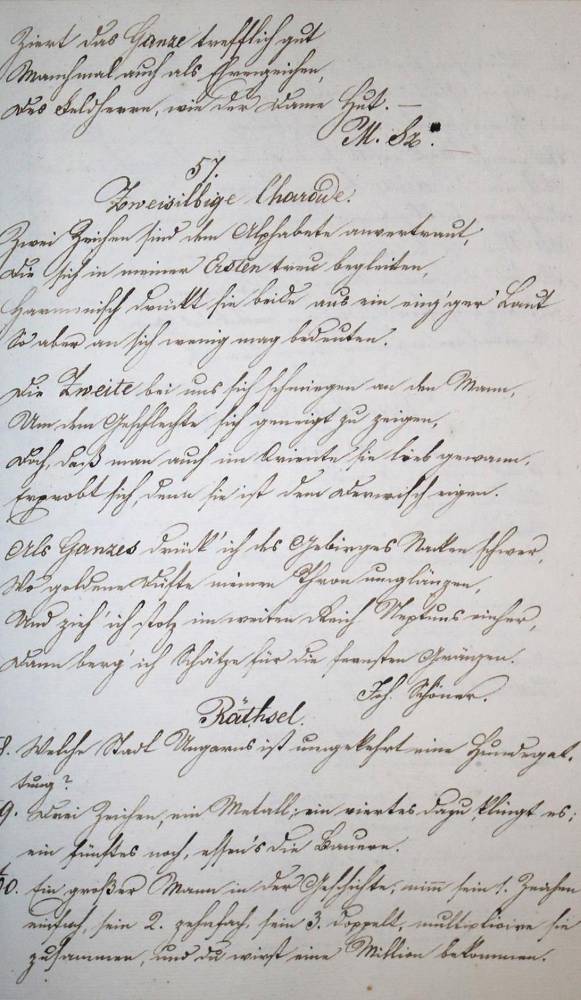 Ziert das Ganze trefflich gut
Manchmal auch als Ehrenzeichen,
Des Feldherrn, wie der Dame Hut. —
M. Sz.
57.
Zweisilbige Charade.
Zwei Zeichen sind dem Alphabete anvertraut,
Die sich in meiner Ersten treu begleiten,
Harmonisch drückt sie beide aus ein einz'ger Laut
So aber an sich wenig mag bedeuten.
Die Zweite bei uns sich schmiegen an den Mann,
Um dem Geschlechte sich geneigt zu zeigen,
Doch, daß man auch im Oriente sie lieb gewann,
Erprobt sich, denn sie ist dem Derwisch eigen.
Als Ganzes drück' ich des Gebirges Nacken schwer,
Wo goldene Düfte meinen Thron umglänzen,
Und zieh' ich stolz im weiten Reich Neptuns einher,
Dann berg' ich Schätze für die fernsten Gränzen.
Joh. Schöner.
Räthsel.
8. Welche Stadt Ungarns ist umgekehrt eine Hundegat-
tung?
9. Drei Zeichen, ein Metall; ein viertes dazu, klingt es;
ein fünftes noch, essen's die Bauern.
10. Ein großer Mann in der Geschichte, nimm sein 1. Zeichen
einfach, sein 2. zehnfach, sein 3. doppelt, multiplicire sie
zusammen, und du wirst eine Million bekommen.